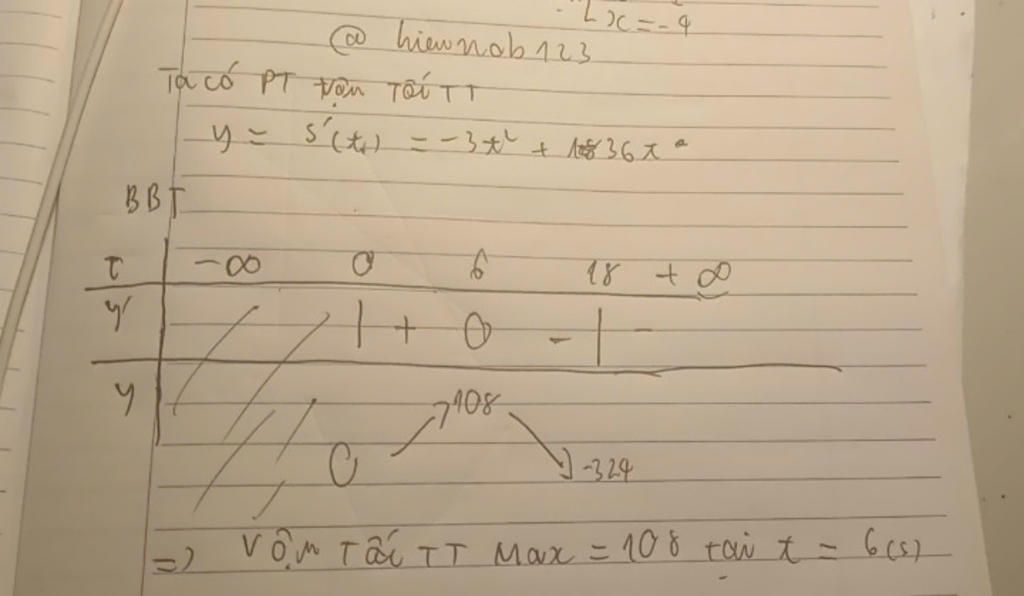 x = -4
@ hieunob123
Ta có PT vận Tốc TT
y = s'(t) = -3t² + 36t
BBT
t -∞ 0 6 18 +∞
y' | + 0 - | -
y 0 108 -324
=> Vận Tốc TT Max = 108 tại t = 6(s)